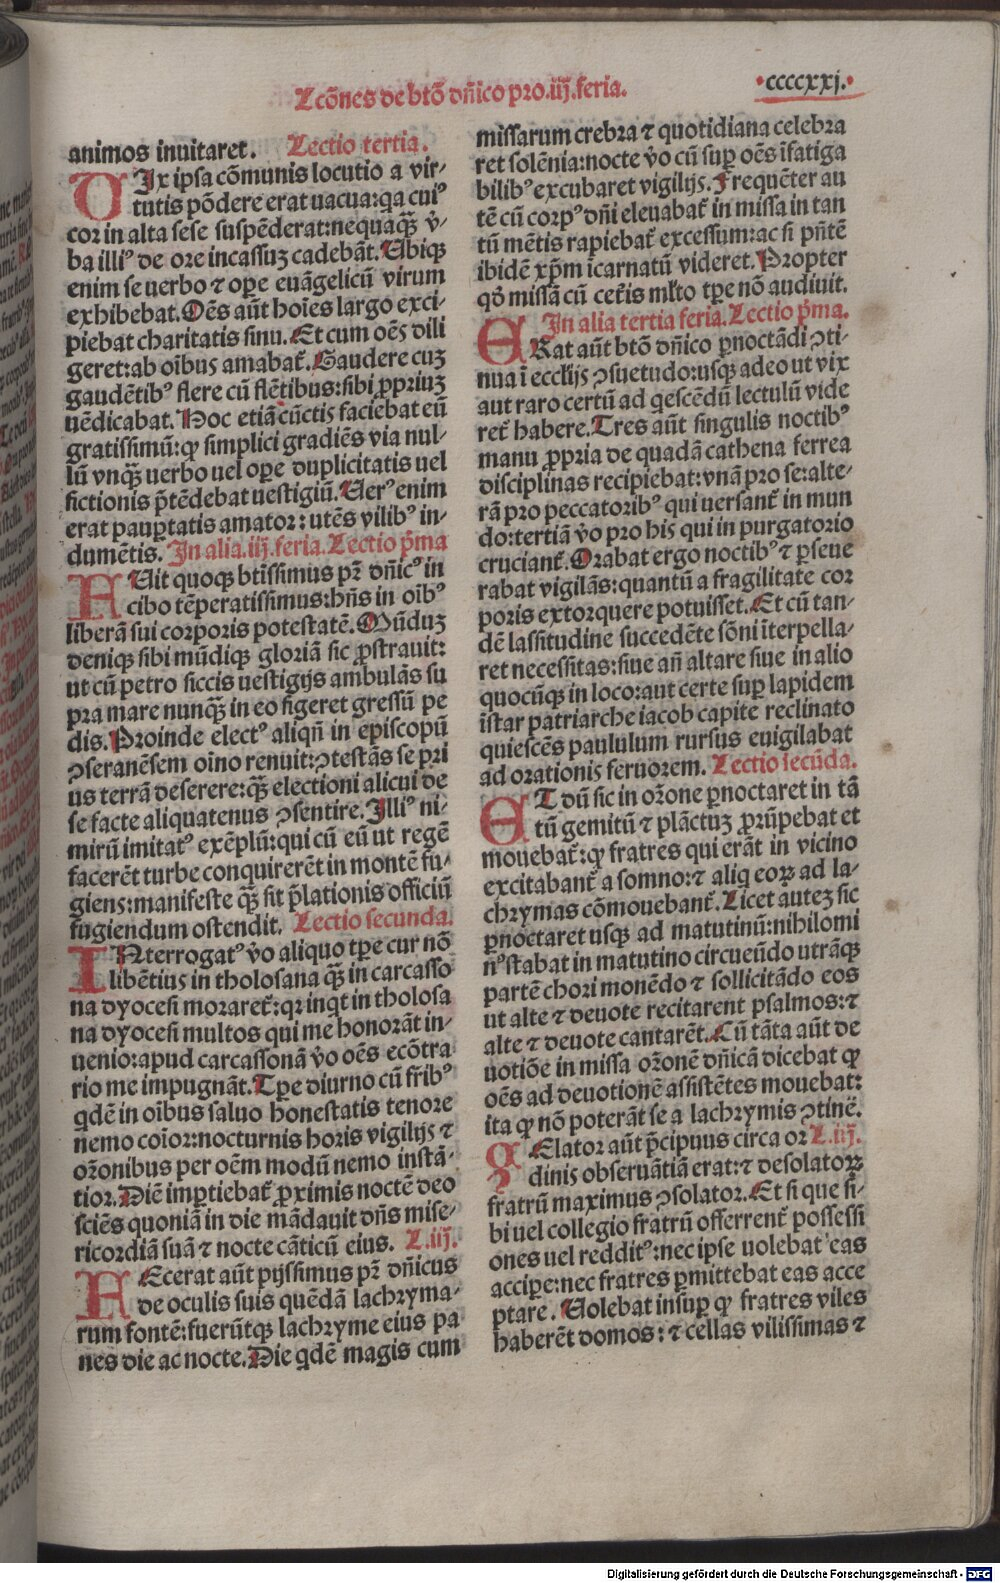 Lcōnes de btō dn̄ico pro.iij.feria.
·ccccxxj.·
animos inuitaret. Lectio tertia.
VIx ipsa cōmunis locutio a vir-
tutis pōdere erat uacua:qa cuiꝰ
cor in alta sese suspēderat:nequaqꝫ v̓-
ba illiꝰ de ore incassuꝫ cadebāt. Ubiqꝫ
enim se uerbo ⁊ oꝑe euāgelicū virum
exhibebat. Oēs aūt hoīes largo exci-
piebat charitatis sinu. Et cum oēs dili
geret:ab oībus amabat̄. Gaudere cuꝫ
gaudētibꝰ flere cū flētibus:sibi ꝓpriuꝫ
uēdicabat. Hoc etiā cūctis faciebat eū
gratissimū:qꝙ simplici gradiēs via nul-
lū vnqꝫ̄ uerbo uel oꝑe duplicitatis uel
fictionis p̄tēdebat uestigiū. Uerꝰ enim
erat pauꝑtatis amator:utēs vilibꝰ in-
dumētis. In alia.iij.feria. Lectio p̄ma
FUit quoqꝫ btissimus pr̄ dn̄icꝰ in
cibo tēperatissimus:hn̄s in oībꝰ
liberā sui corporis potestatē. Mūduꝫ
deniqꝫ sibi mūdiqꝫ gloriā sic ꝓstrauit:
ut cū petro siccis uestigijs ambulās su
pra mare nunqꝫ̄ in eo figeret gressū pe
dis. Proinde electꝰ aliqn̄ in episcopū
ꝯseranēsem oīno renuit:ꝯtestās se pri
us terrā deserere:qꝫ̄ electioni alicui de
se facte aliquatenus ꝯsentire. Illiꝰ ni-
mirū imitatꝰ exēplū:qui cū eū ut regē
facerēt turbe conquirerēt in montē fu-
giens:manifeste qꝫ̄ sit p̄lationis officiū
fugiendum ostendit. Lectio secunda.
INterrogatꝰ v̓o aliquo tꝑe cur nō
libētius in tholosana qꝫ̄ in carcasso
na dyocesi moraret̄:qꝛ inqt in tholosa
na dyocesi multos qui me honorāt in-
uenio:apud carcassonā v̓o oēs ecōtra
rio me impugnāt. Tꝑe diurno cū fribꝰ
qdē in oībus saluo honestatis tenore
nemo coīor:nocturnis horis vigilijs ⁊
oꝛonibus per oēm modū nemo instā-
tior. Diē imꝑtiebat̄ ꝓximis noctē deo
sciēs quoniā in die mādauit dn̄s mise-
ricordiā suā ⁊ nocte cāticū eius. L.iij.
FEcerat aūt pijssimus pr̄ dn̄icus
de oculis suis quēdā lachryma-
rum fontē:fuerūtqꝫ lachryme eius pa
nes die ac nocte. Die qdē magis cum
missarum crebra ⁊ quotidiana celebra
ret solēnia:nocte v̓o cū suꝑ oēs īfatiga
bilibꝰ excubaret vigilijs. Frequēter au
tē cū corpꝰ dn̄i eleuabat̄ in missa in tan
tū mētis rapiebat̄ excessum:ac si pn̄tē
ibidē xp̄m īcarnatū videret. Propter
qꝺ missā cū cet̄is ml̓to tꝑe nō audiuit.
In alia tertia feria. Lectio p̄ma.
ERat aūt btō dn̄ico ꝑnoctādi ꝯti-
nua ī ecclijs ꝯsuetudo:usqꝫ adeo ut vix
aut raro certū ad qescēdū lectulū vide
ret̄ habere. Tres aūt singulis noctibꝰ
manu ꝓpria de quadā cathena ferrea
disciplinas recipiebat:vnā pro se:alte-
rā pro peccatoribꝰ qui uersant̄ in mun
do:tertiā v̓o pro his qui in purgatorio
cruciant̄. Orabat ergo noctibꝰ ⁊ ꝑseue
rabat vigilās:quantū a fragilitate cor
poris extorquere potuisset. Et cū tan-
dē lassitudine succedēte sōni īterpella-
ret necessitas:siue an̄ altare siue in alio
quocūqꝫ in loco:aut certe suꝑ lapidem
īstar patriarche iacob capite reclinato
quiescēs paululum rursus euigilabat
ad orationis feruorem. Lectio secūda.
ET dū sic in oꝛone ꝑnoctaret in tā
tū gemitū ⁊ plāctuꝫ ꝓrūpebat et
mouebat̄:qꝙ fratres qui erāt in vicino
excitabant̄ a somno:⁊ aliq eoꝝ ad la-
chrymas cōmouebant̄. Licet auteꝫ sic
ꝑnoctaret usqꝫ ad matutinū:nihilomi
nꝰ stabat in matutino circueūdo utrāqꝫ
partē chori monēdo ⁊ sollicitādo eos
ut alte ⁊ deuote recitarent psalmos:⁊
alte ⁊ deuote cantarēt. Cū tāta aūt de
uotiōe in missa oꝛonē dn̄icā dicebat qꝙ
oēs ad deuotionē assistētes mouebat:
ita qꝙ nō poterāt se a lachrymis ꝯtinē.
ZElator aūt p̄cipuus circa or L.iij.
dinis obseruātiā erat:⁊ desolatoꝝ
fratrū maximus ꝯsolator. Et si que si-
bi uel collegio fratrū offerrent̄ possessi
ones uel redditꝰ:nec ipse uolebat eas
accipe:nec fratres ꝑmittebat eas acce
ptare. Uolebat insuꝑ qꝙ fratres viles
haberēt domos:⁊ cellas vilissimas ⁊
Digitalisierung gefördert durch die Deutsche Forschungsgemeinschaft - DFG